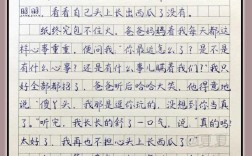 照照,看看自己头上长出西瓜了没有。
纸终究包不住火,爸爸妈妈看我每天都这
样心事重重,便问我:“你最近怎么了?是不是
有什么心事?还是有什么事儿瞒着我们?”我只
好全部都招了。爸爸听后哈哈大笑,他得意地
说:“傻丫头,我那是逗你玩的,没想到你当真
了。”听完,我长长的舒了一口气,说:“真的吗?
太好了,我再也不担心头上长西瓜了!”